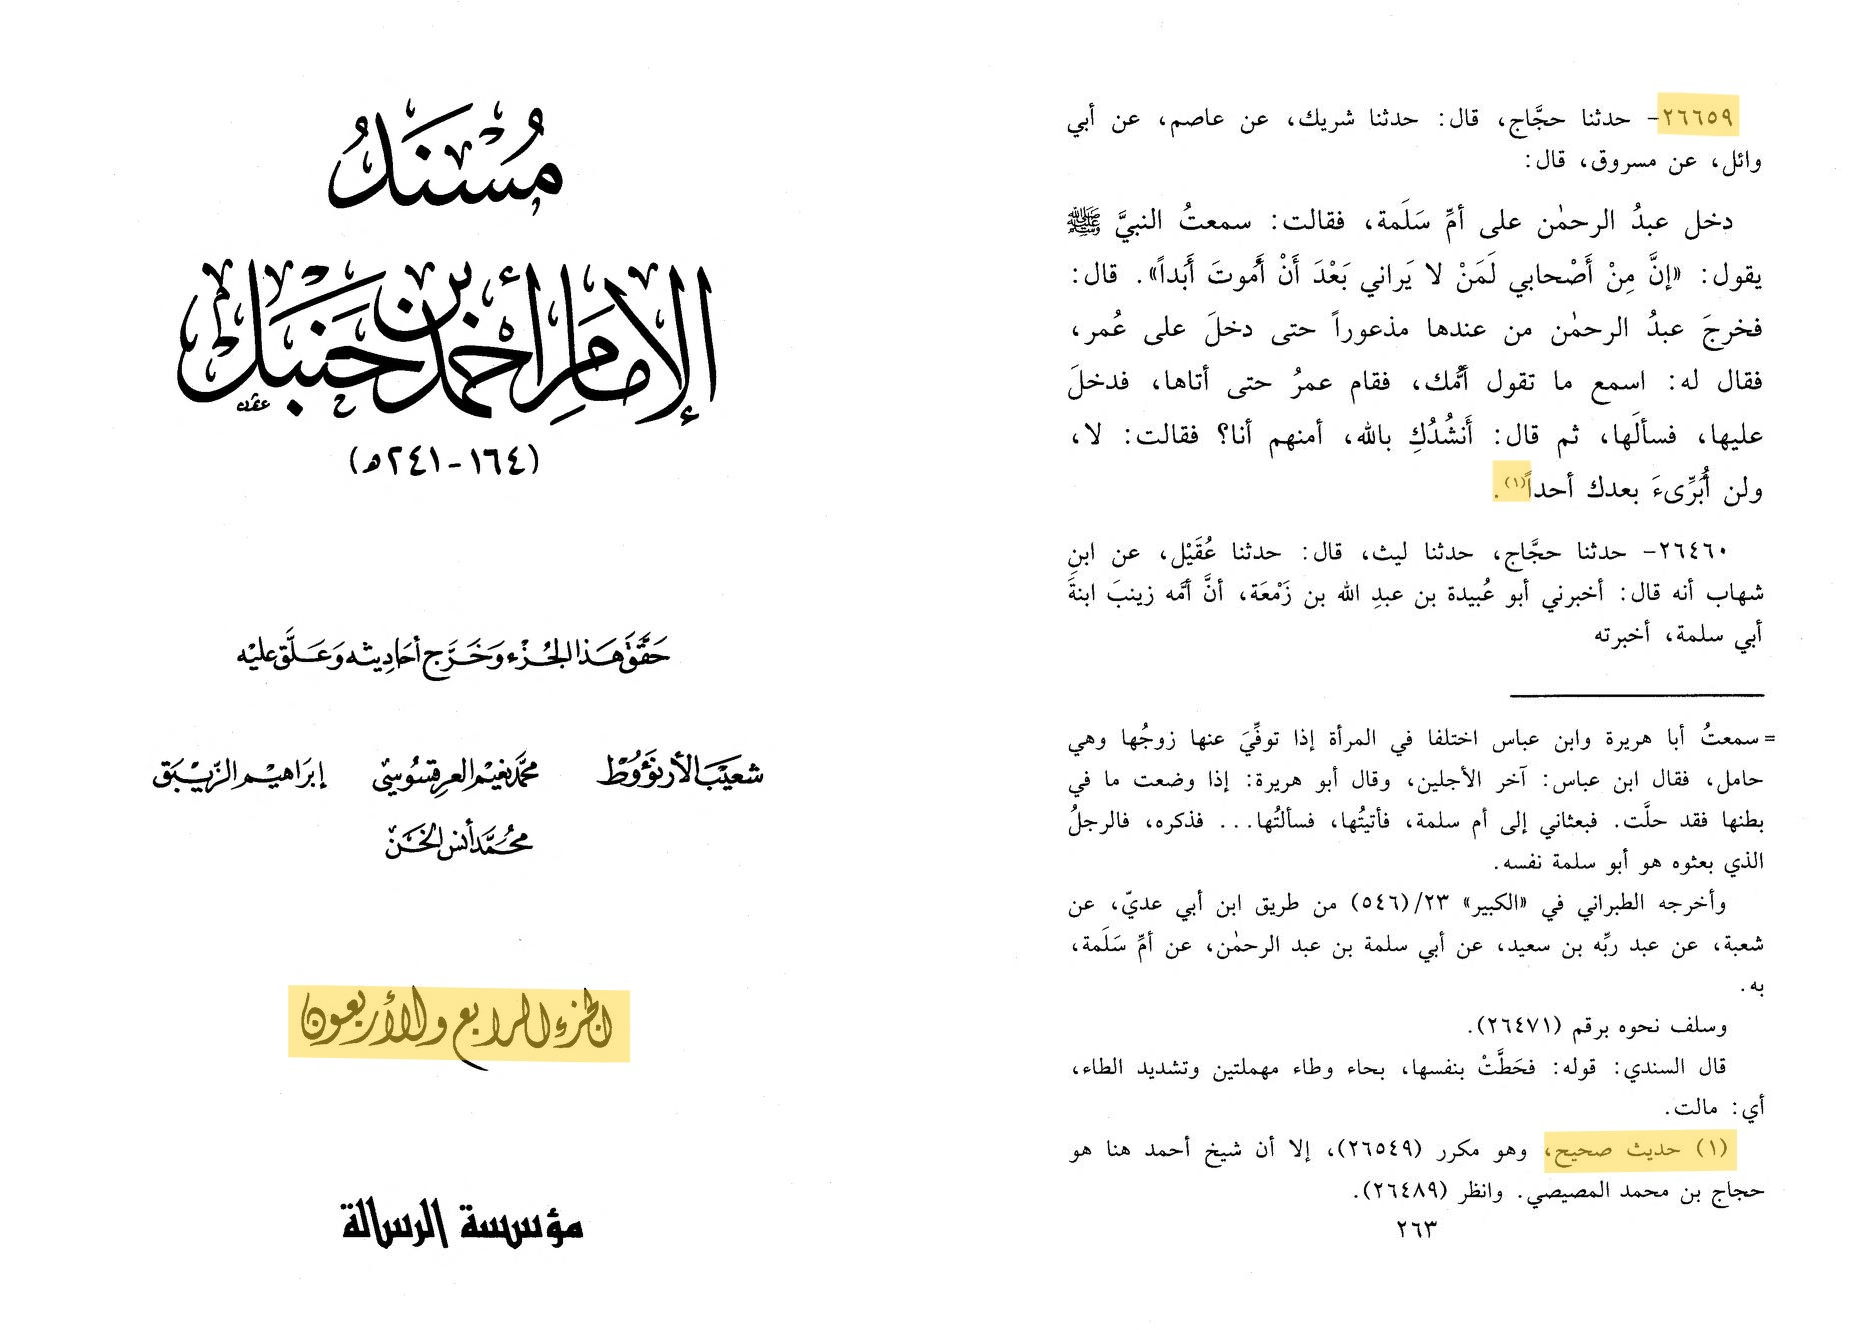 مُسْنَدُ
الإمَامِ أحْمَد بن حَنبَل
(١٦٤ - ٢٤١ه)
حَقَّقَ هَذا الجُزْء وَخَرَّج أحَادِيثه وَعَلَّق عليْه
شعيْب الأرنؤوط محمَّد نعيْم العرقسُوسيّ إبرَاهيْم الزّيبَق
محُمَّد أنس الخنّ
الجزء الرابع والأربعون
مؤسسة الرسالة
٢٦٦٥٩- حدثنا حجَّاج، قال: حدثنا شريك، عن عاصم، عن أبي
وائل، عن مسروق، قال:
دخل عبدُ الرحمٰن على أمِّ سَلَمة، فقالت: سمعتُ النبيَّ ﷺ
يقول: «إنَّ مِنْ أَصْحابي لَمَنْ لا يَراني بَعْدَ أَنْ أَموتَ أَبداً». قال:
فخرجَ عبدُ الرحمٰن من عندها مذعوراً حتى دخلَ على عُمر،
فقال له: اسمع ما تقول أُمُّك، فقام عمرُ حتى أتاها، فدخلَ
عليها، فسألَها، ثم قال: أَنشُدُكِ بالله، أمنهم أنا؟ فقالت: لا،
ولن أُبَرِّىءَ بعدك أحداً(١).
٢٦٤٦٠- حدثنا حجَّاج، حدثنا ليث، قال: حدثنا عُقَيْل، عن ابنِ
شهاب أنه قال: أخبرني أبو عُبيدة بن عبدِ الله بن زَمْعَة، أنَّ أمَّه زينبَ ابنةَ
أبي سلمة، أخبرته
= سمعتُ أبا هريرة وابن عباس اختلفا في المرأة إذا توفِّيَ عنها زوجُها وهي
حامل، فقال ابن عباس: آخر الأجلين، وقال أبو هريرة: إذا وضعت ما في
بطنها فقد حلَّت. فبعثاني إلى أم سلمة، فأتيتُها، فسألتُها... فذكره، فالرجلُ
الذي بعثوه هو أبو سلمة نفسه.
وأخرجه الطبراني في «الكبير» ٢٣/(٥٤٦) من طريق ابن أبي عديّ، عن
شعبة، عن عبد ربِّه بن سعيد، عن أبي سلمة بن عبد الرحمٰن، عن أمِّ سَلَمة،
به.
وسلف نحوه برقم (٢٦٤٧١).
قال السندي: قوله: فحَطَّتْ بنفسها، بحاء وطاء مهملتين وتشديد الطاء،
أي: مالت.
(١) حديث صحيح، وهو مكرر (٢٦٥٤٩)، إلا أن شيخ أحمد هنا هو
حجاج بن محمد المصيصي. وانظر (٢٦٤٨٩).
٢٦٣